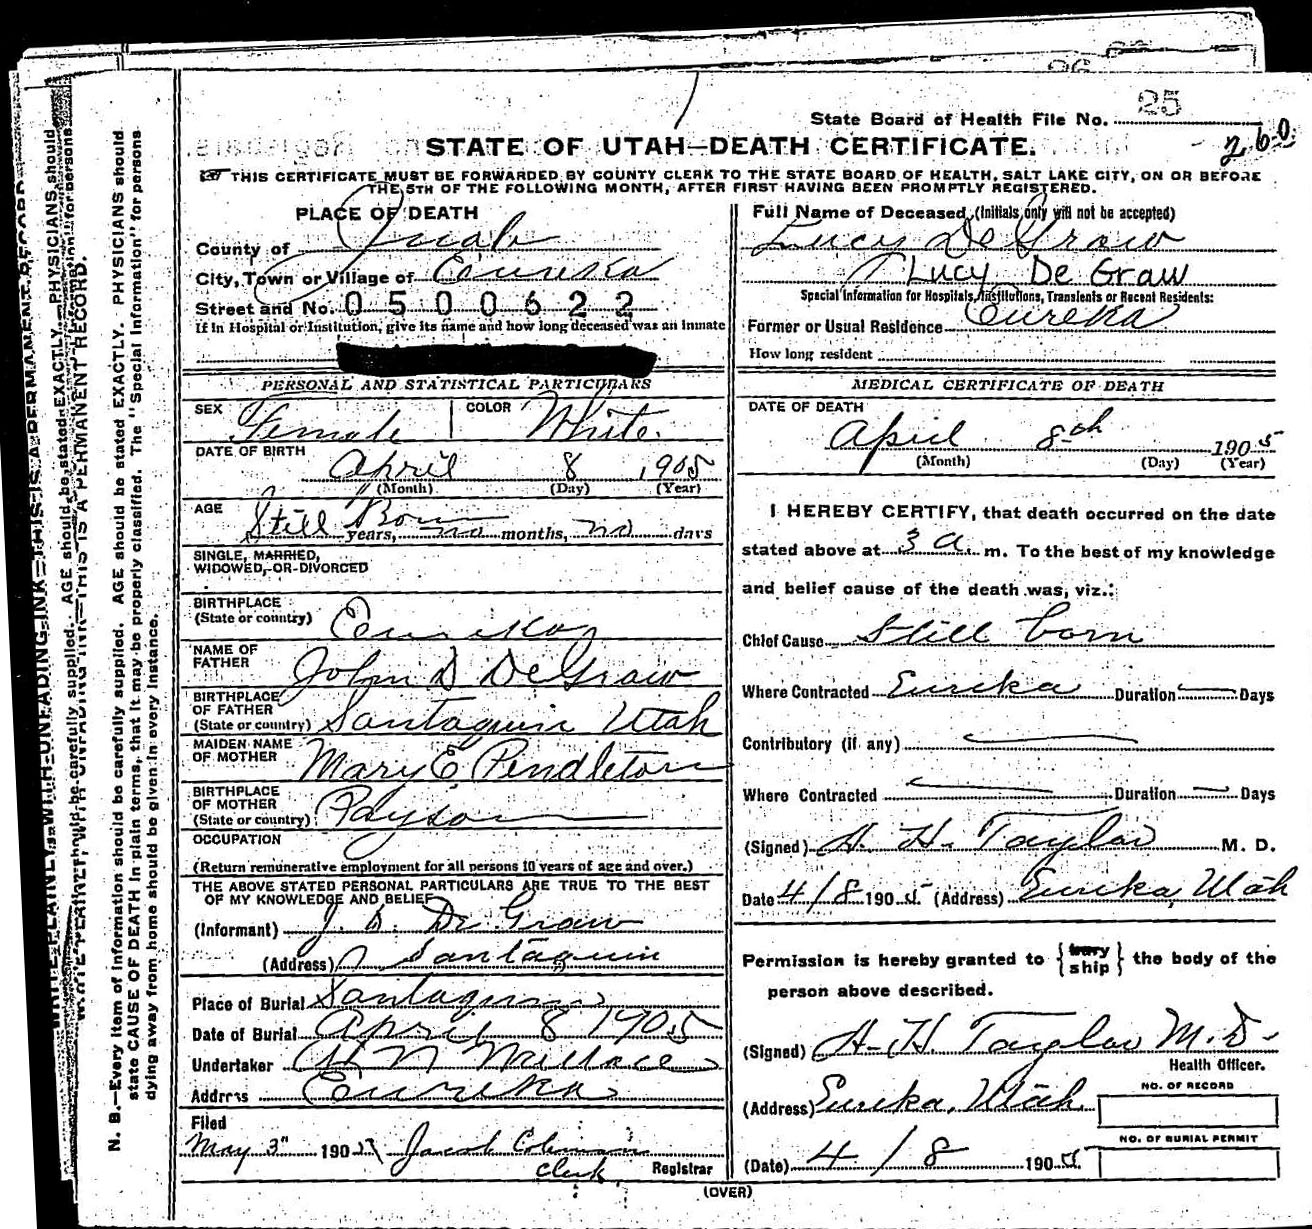 State Board of Health File No. 25
260
STATE OF UTAH—DEATH CERTIFICATE.
THIS CERTIFICATE MUST BE FORWARDED BY COUNTY CLERK TO THE STATE BOARD OF HEALTH, SALT LAKE CITY, ON OR BEFORE
THE 5TH OF THE FOLLOWING MONTH, AFTER FIRST HAVING BEEN PROMPTLY REGISTERED.
PLACE OF DEATH
County of Juab
City, Town or Village of Eureka
Street and No. 0500622
If in Hospital or Institution, give its name and how long deceased was an inmate
PERSONAL AND STATISTICAL PARTICULARS
SEX Female COLOR White
DATE OF BIRTH April 8 1905
(Month) (Day) (Year)
AGE Still Born years, no months, no days
SINGLE, MARRIED,
WIDOWED, OR DIVORCED
BIRTHPLACE
(State or country) Eureka
NAME OF
FATHER John D DeGraw
BIRTHPLACE
OF FATHER
(State or country) Santaquin Utah
MAIDEN NAME
OF MOTHER Mary E Pendleton
BIRTHPLACE
OF MOTHER
(State or country) Payson
OCCUPATION
(Return remunerative employment for all persons 10 years of age and over.)
THE ABOVE STATED PERSONAL PARTICULARS ARE TRUE TO THE BEST
OF MY KNOWLEDGE AND BELIEF
(Informant) J. D. De Graw
(Address) Santaquin
Place of Burial Santaquin
Date of Burial April 8 1905
Undertaker Wallace
Address Eureka
Filed
May 3" 1905 Jacob Coleman
Clerk Registrar
Full Name of Deceased (Initials only will not be accepted)
Lucy DeGraw
Lucy De Graw
Special Information for Hospitals, Institutions, Transients or Recent Residents:
Former or Usual Residence Eureka
How long resident
MEDICAL CERTIFICATE OF DEATH
DATE OF DEATH
April 8th 1905
(Month) (Day) (Year)
I HEREBY CERTIFY, that death occurred on the date
stated above at 3 a. m. To the best of my knowledge
and belief cause of the death was, viz.:
Chief Cause Still born
Where Contracted Eureka Duration — Days
Contributory (if any) —
Where Contracted — Duration — Days
(Signed) H. H. Taylor M. D.
Date 4/8 1905 (Address) Eureka, Utah
Permission is hereby granted to {bury ship} the body of the
person above described.
(Signed) H. H. Taylor M. D.
Health Officer.
(Address) Eureka, Utah
NO. OF RECORD
NO. OF BURIAL PERMIT
(Date) 4/8 1905
(OVER)
N. B.—Every item of information should be carefully supplied. AGE should be stated EXACTLY. PHYSICIANS should
state CAUSE OF DEATH in plain terms, that it may be properly classified. The "Special Information" for persons
dying away from home should be given in every instance.